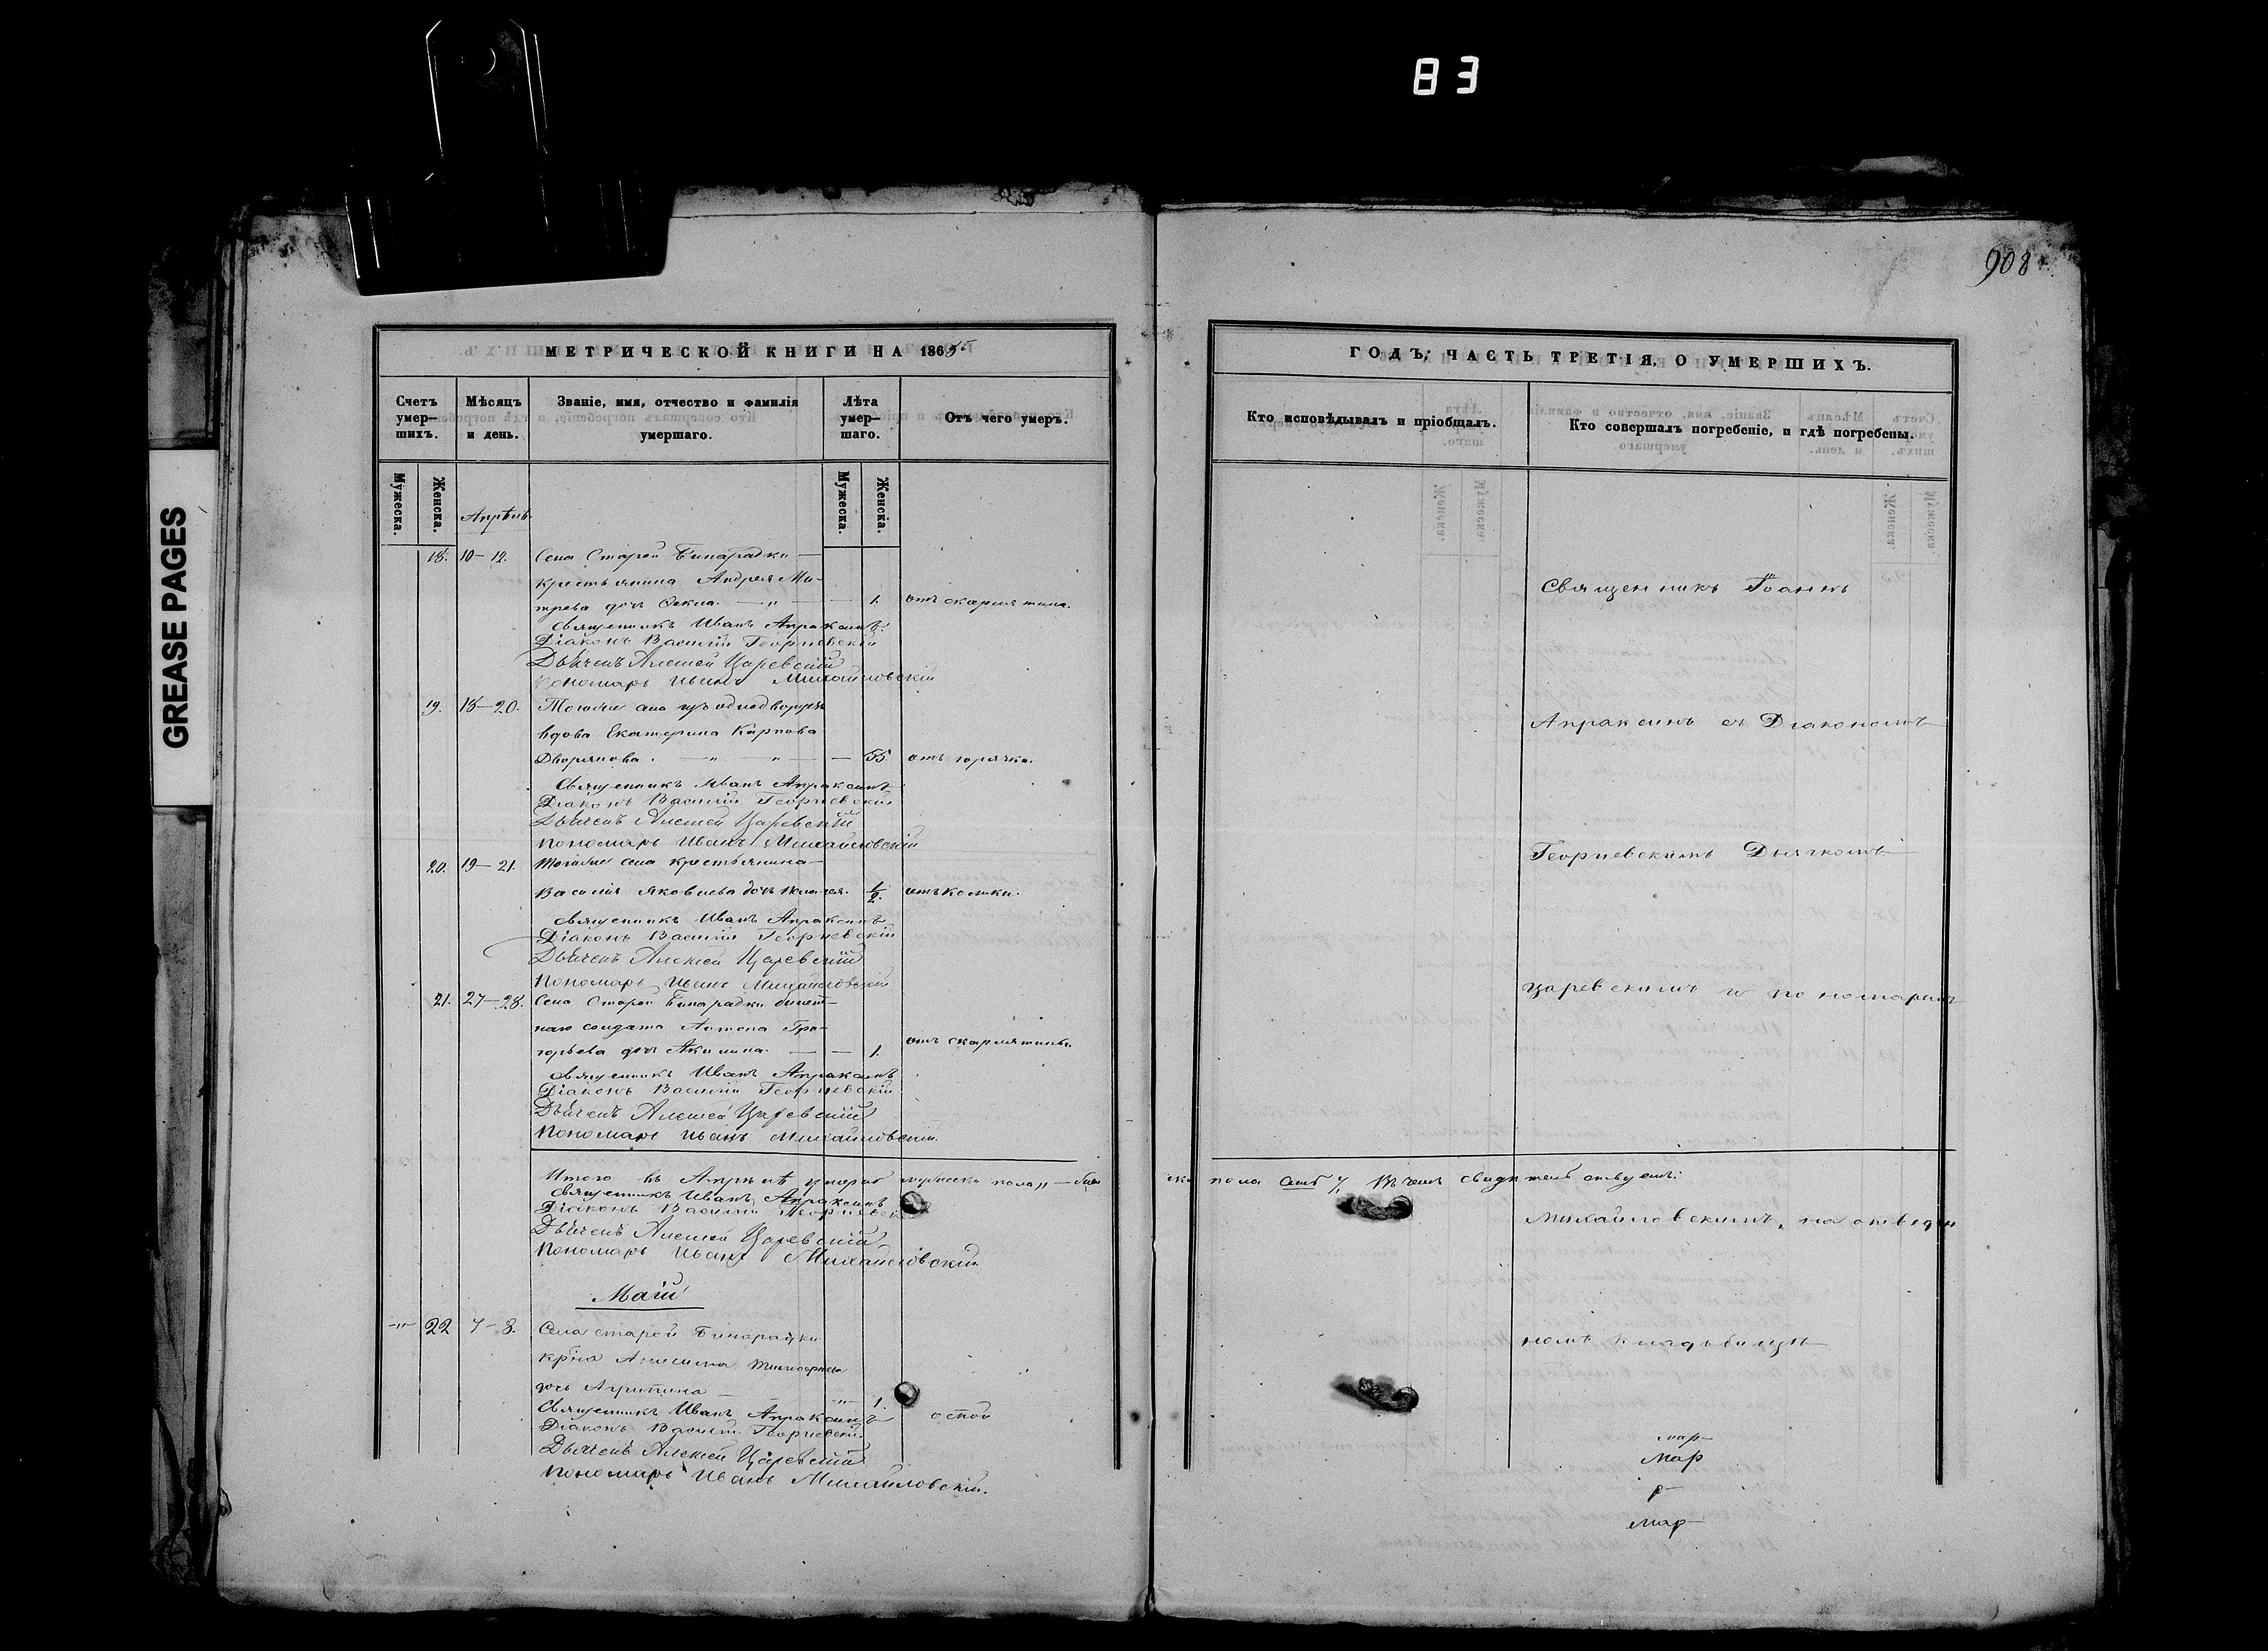 83
GREASE PAGES
908
МЕТРИЧЕСКОЙ КНИГИ НА 1865
Счетъ умер-шихъ.
Мѣсяцъ и день.
Званіе, имя, отчество и фамилія умершаго.
Лѣта умер-шаго.
Отъ чего умеръ.
Мужеска.
Женска.
Мужеска.
Женскіа.
Апрѣль
18. 10-12. Села Старой Бинарадки
крестьянина Андрея Ми-
трева дочь Фекла. — " — — 1. отъ скарлятина.
Священникъ Иванъ Апраксинъ.
Діаконъ Василій Георгіевскій
Дьячекъ Алексей Царевскій
Пономарь Иванъ Михайловскій
19. 18-20. Тогоже села изъ однодворцевъ
вдова Екатерина Карпова
Дворянова. — " — " — — 55. отъ горячки.
Священникъ Иванъ Апраксинъ
Діаконъ Василій Георгіевскій
Дьячекъ Алексей Царевскій
Пономарь Иванъ Михайловскій
20. 19-21. Тогоже села крестьянина
Василія Яковлева дочь Пелагея. 1/2. отъ колики.
Священникъ Иванъ Апраксинъ
Діаконъ Василій Георгіевскій
Дьячекъ Алексей Царевскій
Пономарь Иванъ Михайловскій
21. 27-28. Села Старой Бинарадки билет-
наго солдата Антона Гри-
горьева дочь Акилина. — — 1. отъ скарлятины.
Священникъ Иванъ Апраксинъ
Діаконъ Василій Георгіевскій
Дьячекъ Алексей Царевскій
Пономарь Иванъ Михайловскій.
Итого въ Апрѣлѣ умерло мужеска пола " —
Священникъ Иванъ Апраксинъ
Діаконъ Василій Георгіевскій
Дьячекъ Алексей Царевскій
Пономарь Иванъ Михайловскій
Маій
-"- 22 7-8. Села старой Бинарадки
кр-на Анисима
дочь Агрипина — -"- 1.
оспой
Священникъ Иванъ Апраксинъ
Діаконъ Василій Георгіевскій.
Дьячекъ Алексей Царевскій
Пономарь Иванъ Михайловскій.
ГОДЪ, ЧАСТЬ ТРЕТІЯ, О УМЕРШИХЪ.
Кто исповѣдывалъ и пріобщалъ.
Кто совершалъ погребеніе, и гдѣ погребены.
Священникъ Іоаннъ
Апраксинъ съ Діакономъ
Георгіевскимъ Дьячкомъ
Царевскимъ и пономаремъ
пола Въ чемъ свидѣтельствуемъ:
Михайловскимъ, на отведен
номъ кладьбищѣ
мар
мар
р
мар